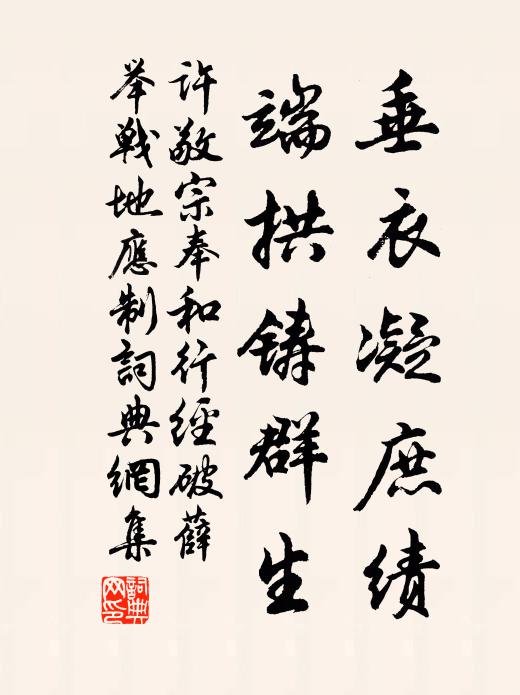 垂衣凝庶绩
端拱铸群生
许敬宗奉和行經破薛
举戰地應制詞典網集
詞典網印